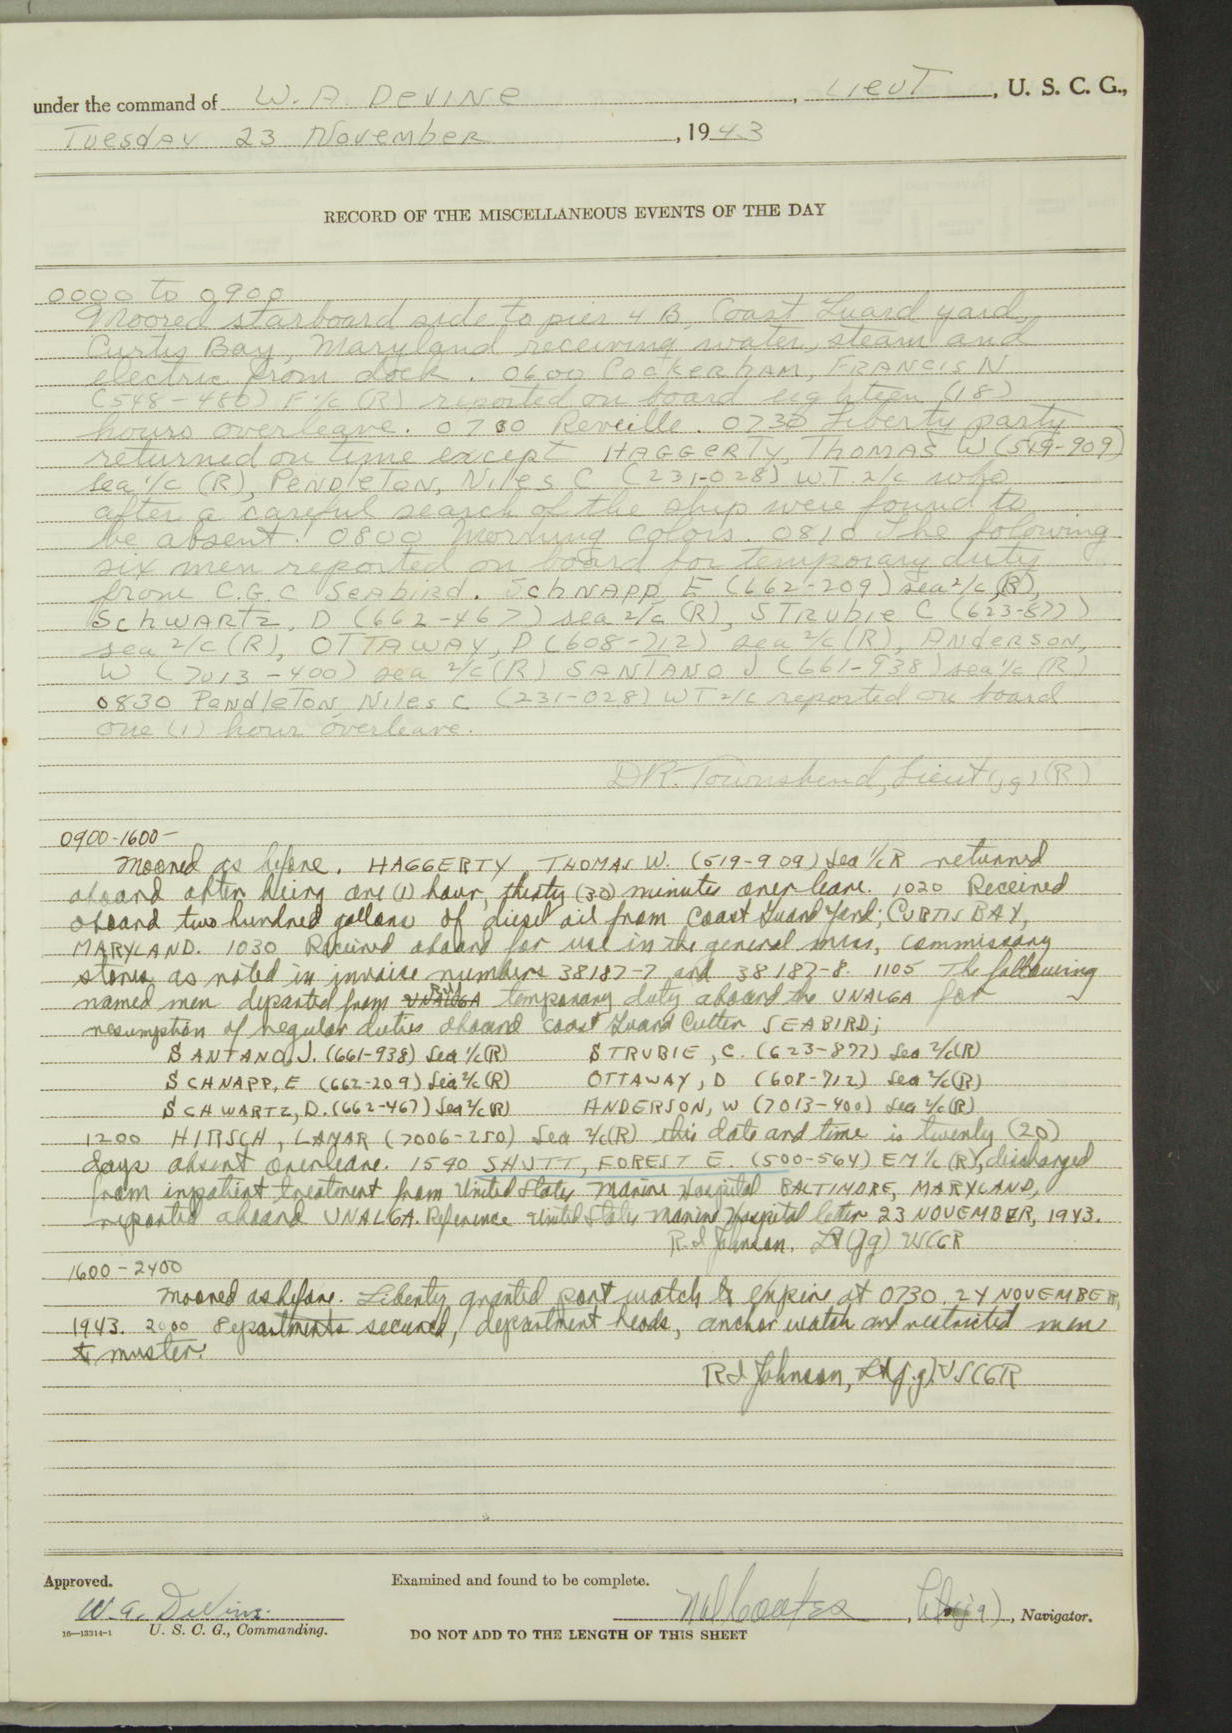 under the command of W. A. DeVINe, LIeuT, U. S. C. G.,
Tuesday 23 November, 1943
RECORD OF THE MISCELLANEOUS EVENTS OF THE DAY
0000 to 0900
Moored starboard side to pier 4 B, Coast Guard yard,
Curtis Bay, Maryland receiving water, steam and
electric from dock. 0600 CockerHAM, FRANCIS N
(548-480) F 1/c (R) reported on board eighteen (18)
hours overleave. 0700 Reveille. 0730 Liberty party
returned on time except HAGGERTY, THOMAS W (519-909)
sea 1/c (R), PENDLETON, NILes C (231-028) WT 2/c who
after a careful search of the ship were found to
be absent. 0800 Morning Colors. 0810 The folowing
six men reported on board for temporary duty
from C.G.C Seabird. SchNAPP, E (662-209) sea 2/c (R),
SchWARTZ, D (662-467) sea 2/c (R), STRUbIe C (623-877)
sea 2/c (R), OTTAWAY, D (608-712) sea 2/c (R), ANdeRSON,
W (7013-400) sea 2/c (R) SANTANO J (661-938) sea 1/c (R)
0830 PeNdleTON, NILes C (231-028) WT 2/c reported on board
one (1) hour overleave.
DR. Townshend, Lieut (jg) (R)
0900-1600-
Moored as before. HAGGERTY, THOMAS W. (519-909) Sea 1/c R returned
aboard after being one (1) hour, thirty (30) minutes over leave. 1020 Received
aboard two hundred gallons of diesel oil from Coast Guard Yard; CURTIS BAY,
MARYLAND. 1030 Received aboard for use in the general mess, commissary
stores as noted in invoice numbers 38187-7 and 38187-8. 1105 The following
named men departed from UNALGA temporary duty aboard the UNALGA for
resumption of regular duties aboard Coast Guard Cutter SEABIRD;
SANTANO, J. (661-938) Sea 1/c (R) STRUBIE, C. (623-877) Sea 2/c (R)
SCHNAPP, E (662-209) Sea 2/c (R) OTTAWAY, D (608-712) Sea 2/c (R)
SCHWARTZ, D. (662-467) Sea 2/c (R) ANDERSON, W (7013-400) Sea 2/c (R)
1200 HIRSCH, LAMAR (7006-250) Sea 2/c (R) this date and time is twenty (20)
days absent overleave. 1540 SHUTT, FOREST E. (500-564) EM 1/c (R), discharged
from inpatient treatment from United States Marine Hospital BALTIMORE, MARYLAND,
reported aboard UNALGA. Reference United States Marine Hospital letter 23 NOVEMBER, 1943.
R. I Johnson, Lt (jg) USCGR
1600-2400
Moored as before. Liberty granted port watch to expire at 0730, 24 NOVEMBER,
1943. 2000 Departments secured, department heads, anchor watch and restricted men
to muster.
R I Johnson, Lt (j.g) USCGR
Approved.
Examined and found to be complete.
W. A. DeVine
U. S. C. G., Commanding.
, Lt (jg), Navigator.
16—13314-1
DO NOT ADD TO THE LENGTH OF THIS SHEET